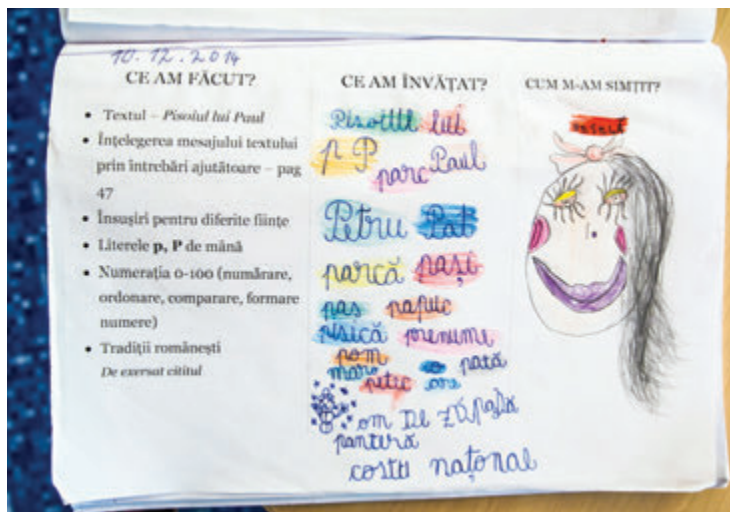 10.12.2014
CE AM FĂCUT?
• Textul – Pisoiul lui Paul
• Înțelegerea mesajului textului
prin întrebări ajutătoare – pag
47
• Însușiri pentru diferite ființe
• Literele p, P de mână
• Numerația 0-100 (numărare,
ordonare, comparare, formare
numere)
• Tradiții românești
De exersat cititul
CE AM ÎNVĂȚAT?
Pisoiul lui
p P
parc Paul
Petru Pat
parcă pași
pas papuc
pisică prenume
pom
mare pată
petic
om DE ZĂpadă
panteră
costu național
CUM M-AM SIMȚIT?